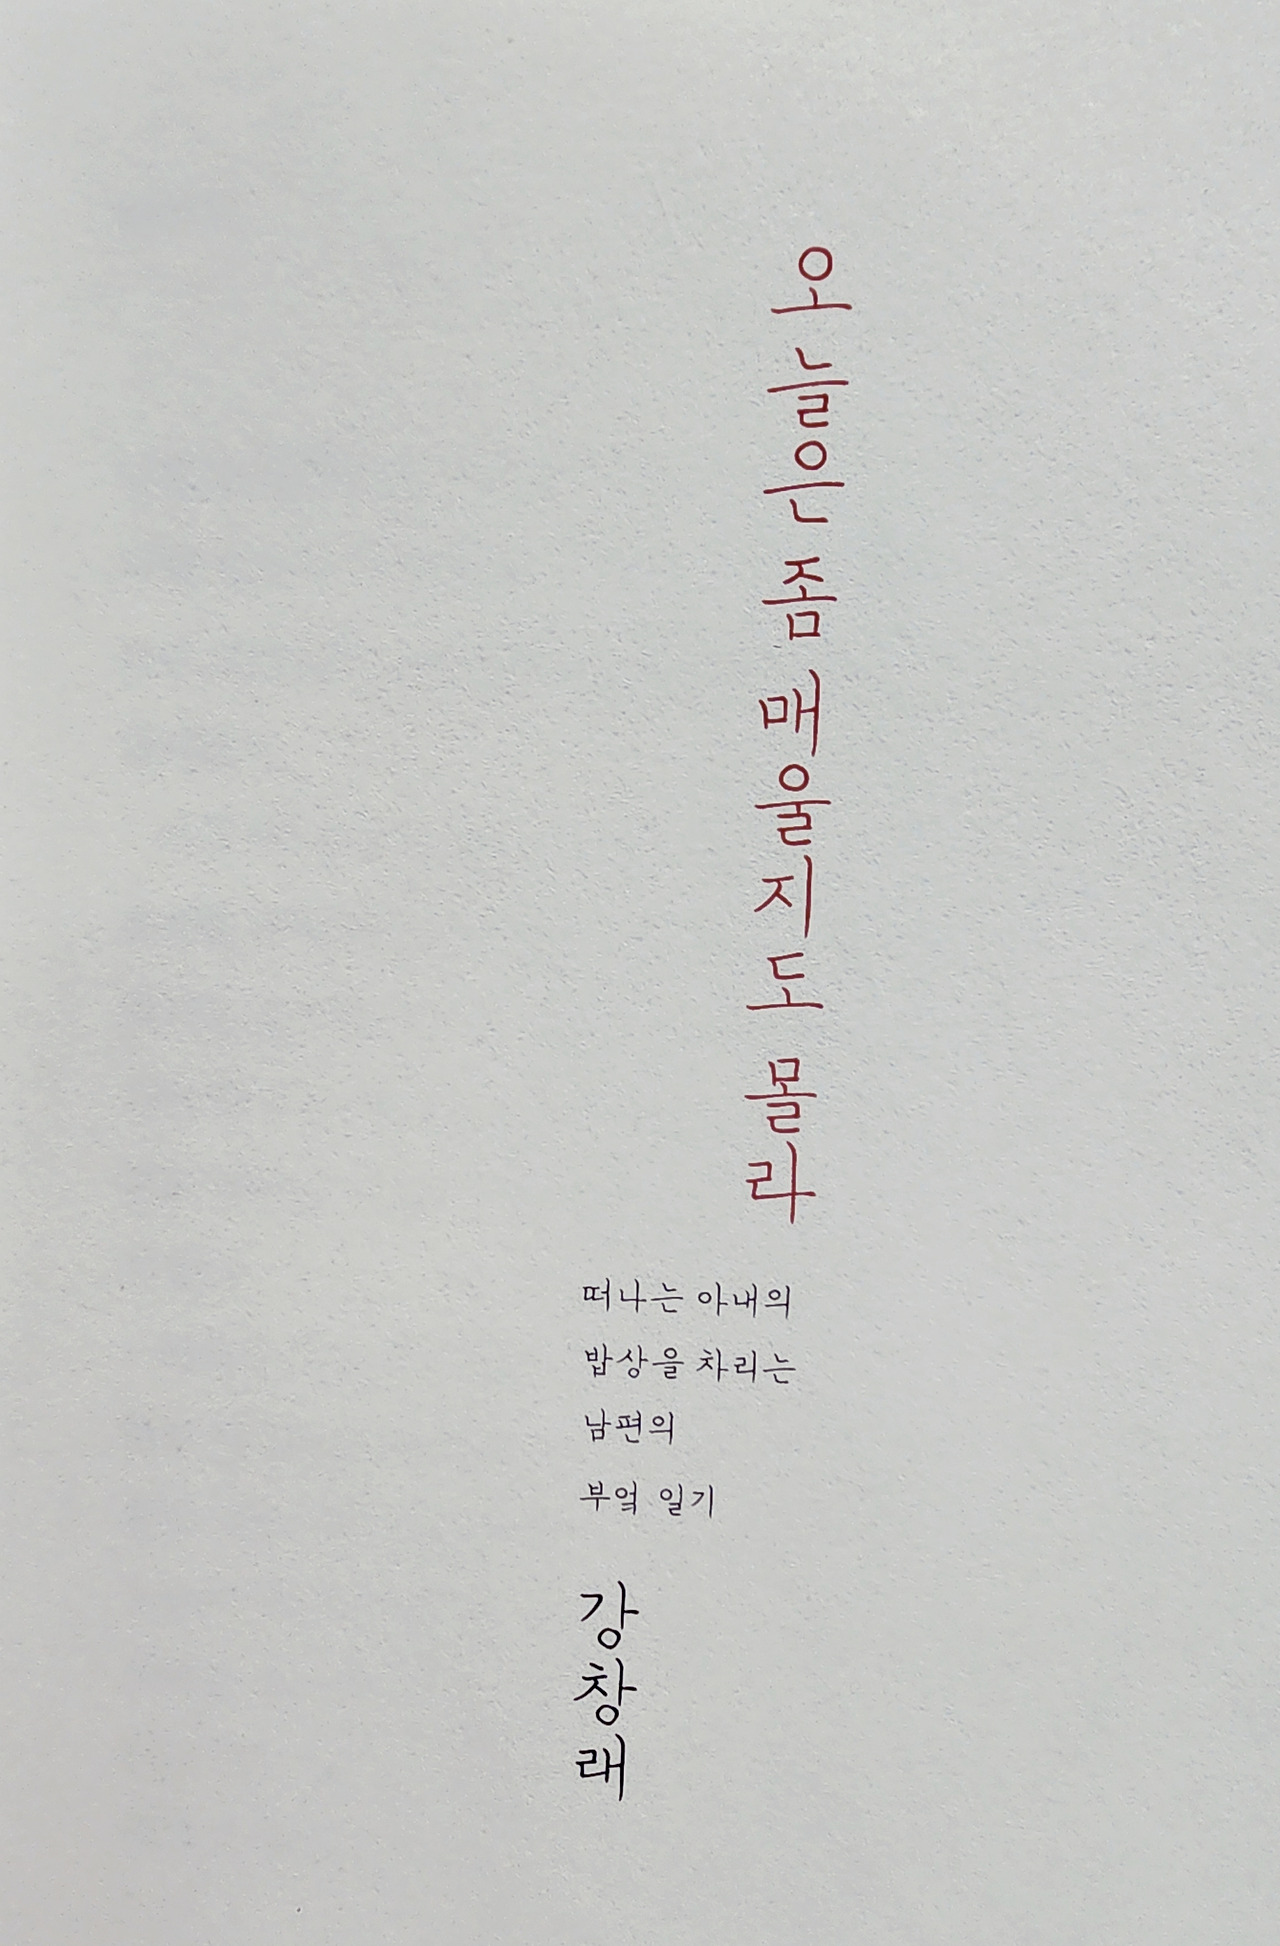 오늘은 좀 매울지도 몰라
떠나는 아내의
밥상을 차리는
남편의
부엌 일기
강창래